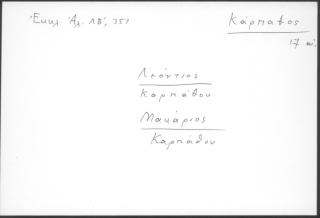 Ἐκκλ. Ἀλ. ΛΒ', 351
Κάρπαθος
17 αἰ.
Λεόντιος
Καρπάθου
Μακάριος
Καρπάθου